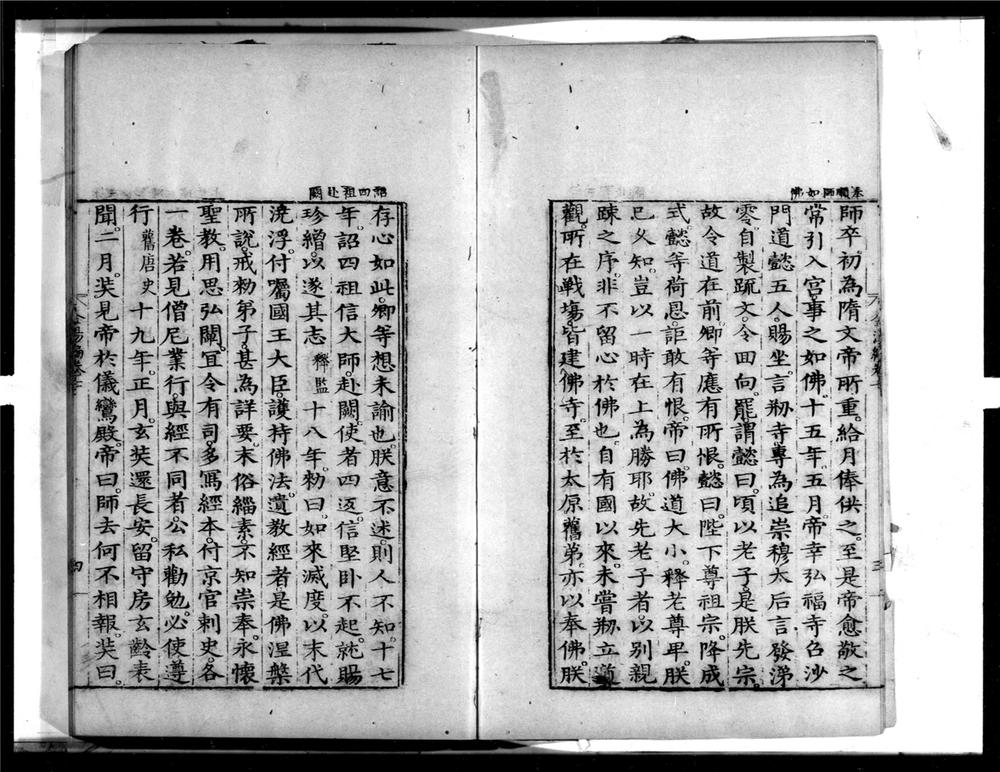 奉順師如佛
師卒初為隋文帝所重給月俸供之至是帝愈敬之
常引入宮事之如佛十五年五月帝幸弘福寺召沙
門道懿五人賜坐言剏寺專為追崇穆太后言發涕
零自製疏文令回向罷謂懿曰頃以老子是朕先宗
故令道在前卿等應有所恨懿曰陛下尊祖宗降成
式懿等荷恩詎敢有恨帝曰佛道大小釋老尊卑朕
已久知豈以一時在上為勝耶故先老子者以別親
踈之序非不留心於佛也自有國以來未嘗剏立道
觀所在戰塲皆建佛寺至於太原舊第亦以奉佛朕
三
詔四祖赴闕
存心如此卿等想未諭也朕意不述則人不知十七
年詔四祖信大師赴闕使者四返信堅卧不起就賜
珍繒以遂其志 釋監 十八年勑曰如來滅度以末代
澆浮付囑國王大臣護持佛法遺教經者是佛涅槃
所說戒勑弟子甚為詳要末俗緇素不知崇奉永懷
聖教用思弘闡宜令有司多寫經本付京官刺史各
一卷若見僧尼業行與經不同者公私勸勉必使遵
行 舊唐史 十九年正月玄奘還長安留守房玄齡表
聞二月奘見帝於儀鸞殿帝曰師去何不相報奘曰
四